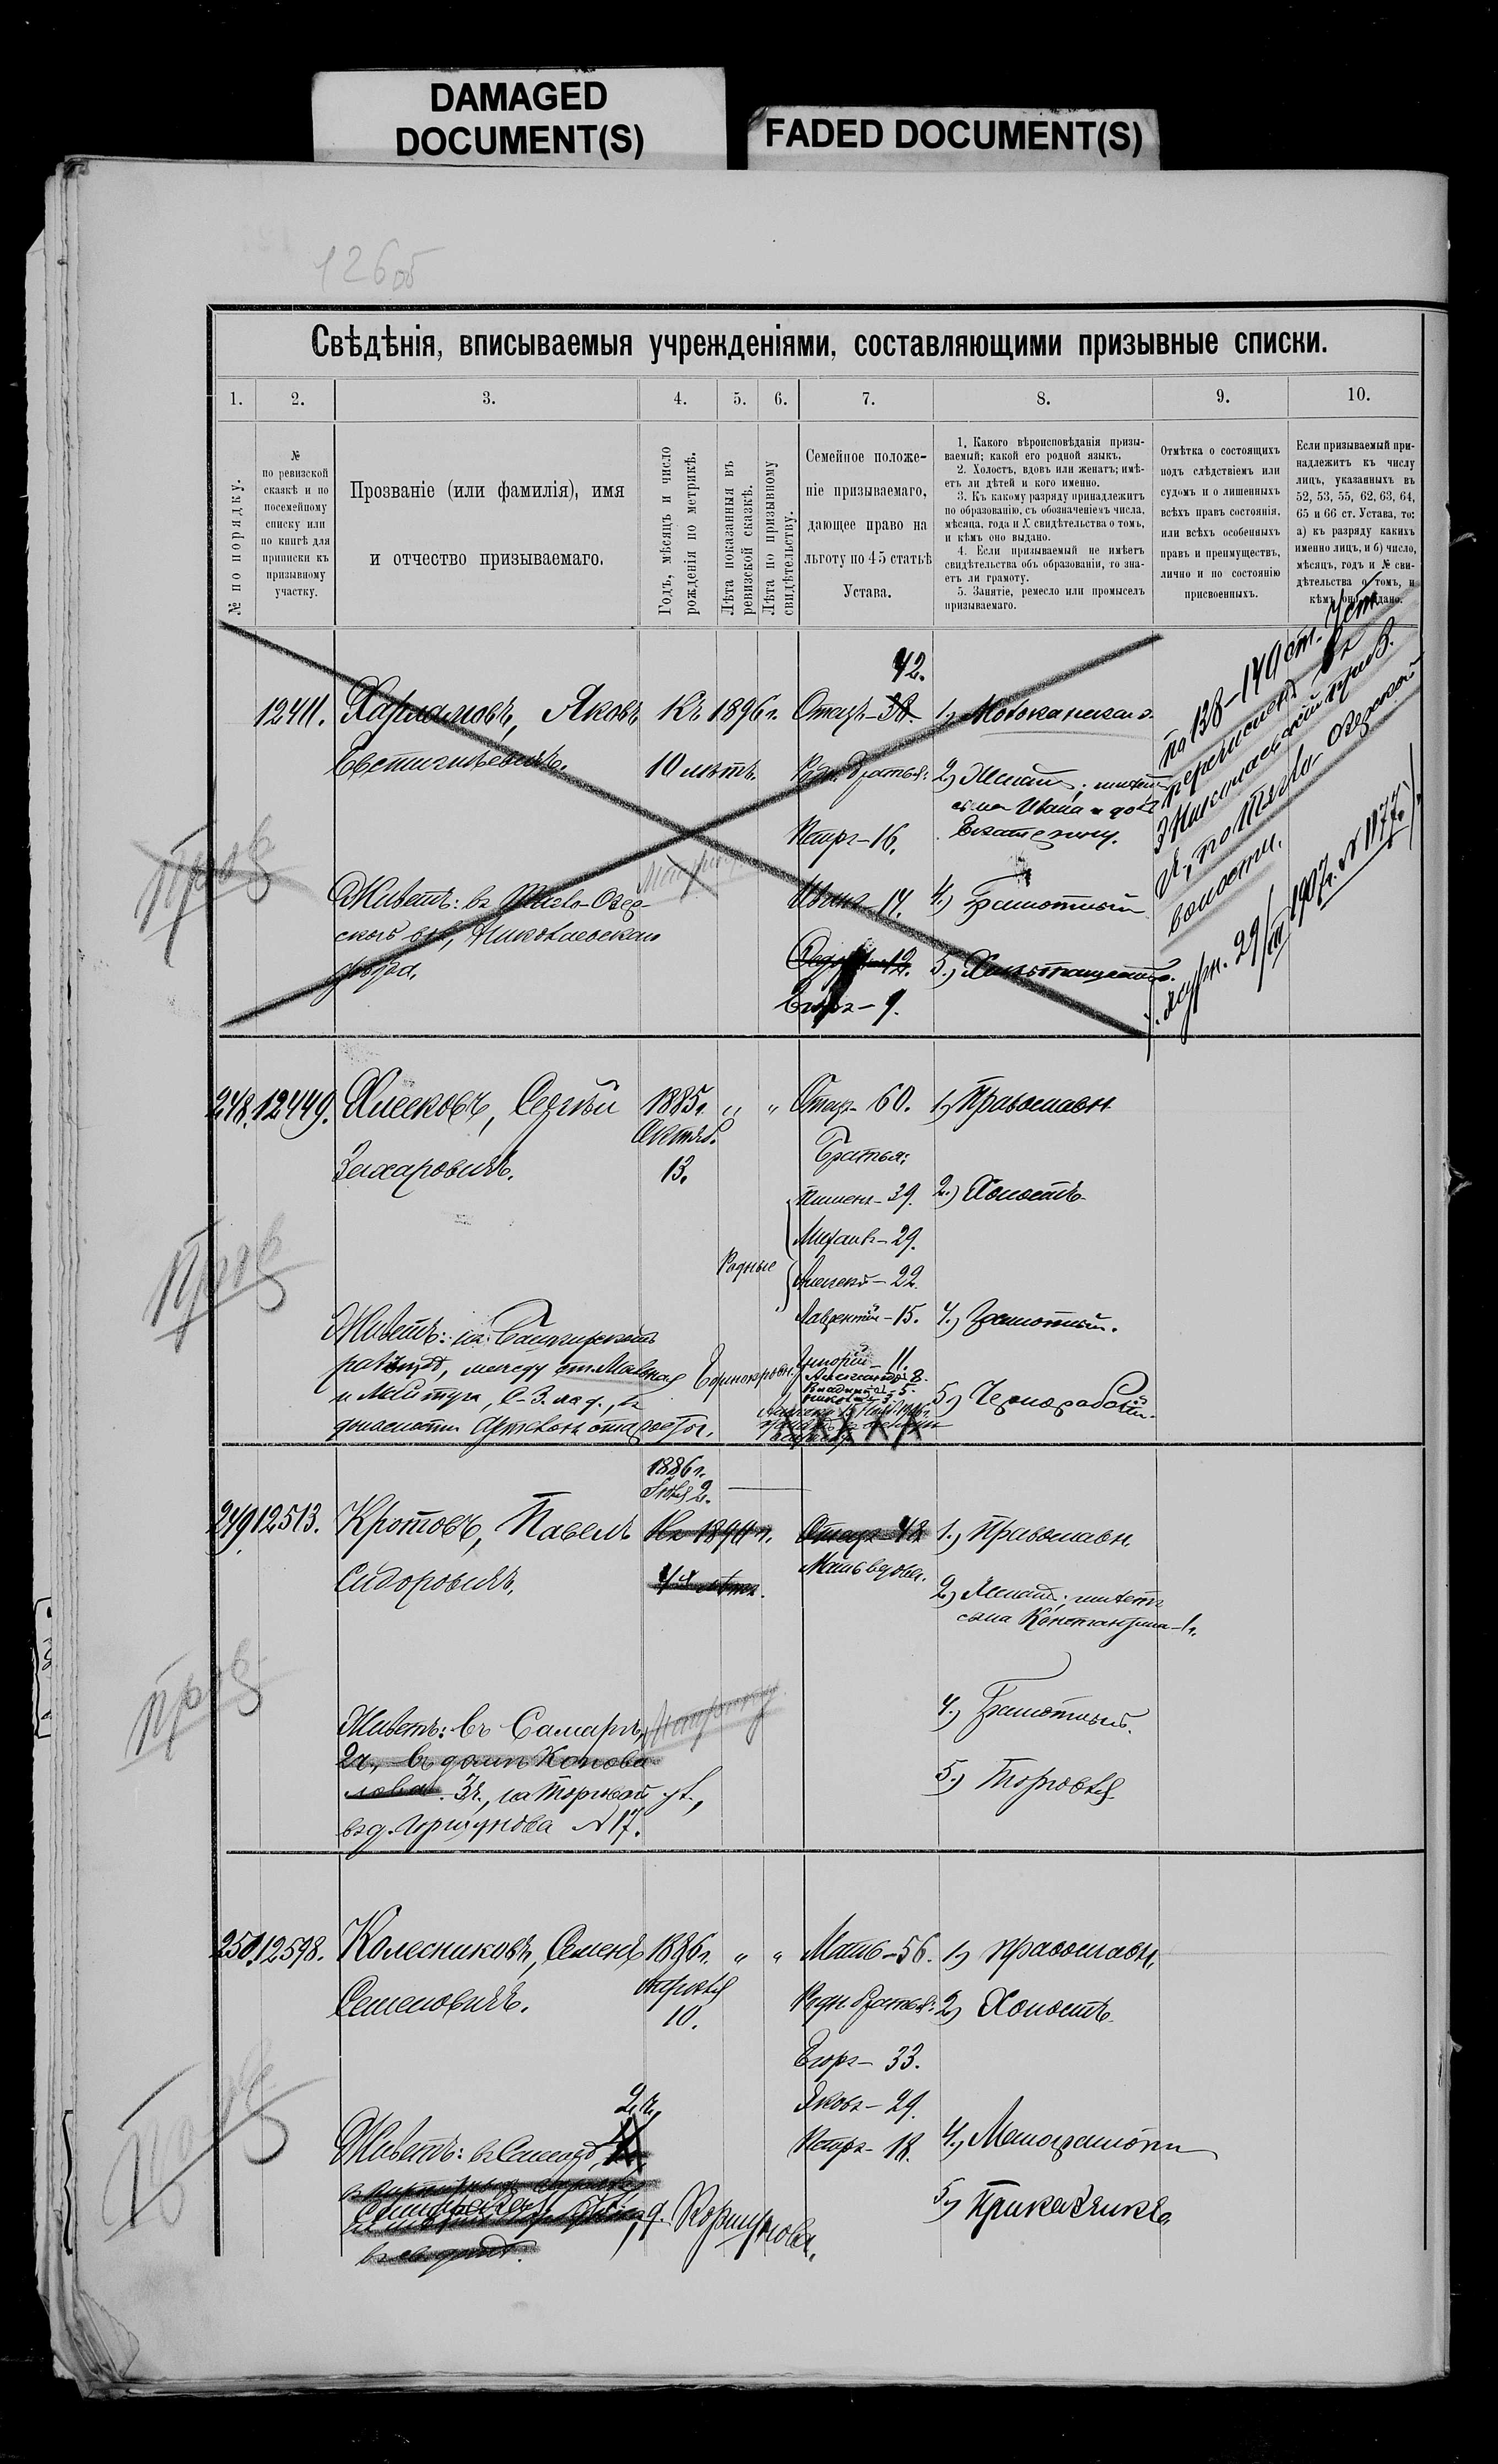 DAMAGED
DOCUMENT(S)
FADED DOCUMENT(S)
126об
Свѣдѣнія, вписываемыя учрежденіями, составляющими призывные списки.
1.
2.
3.
4.
5.
6.
7.
8.
9.
10.
№ по порядку.
№
по ревизской
сказкѣ и по
посемейному
списку или
по книгѣ для
приписки къ
призывному
участку.
Прозваніе (или фамилія), имя
и отчество призываемаго.
Годъ, мѣсяцъ и число
рожденія по метрикѣ.
Лѣта показанныя въ
ревизской сказкѣ.
Лѣта по призывному
свидѣтельству.
Семейное положе-
ніе призываемаго,
дающее право на
льготу по 45 статьѣ
Устава.
1. Какого вѣроисповѣданія призы-
ваемый; какой его родной языкъ.
2. Холостъ, вдовъ или женатъ; имѣ-
етъ ли дѣтей и кого именно.
3. Къ какому разряду принадлежитъ
по образованію, съ обозначеніемъ числа,
мѣсяца, года и № свидѣтельства о томъ,
и кѣмъ оно выдано.
4. Если призываемый не имѣетъ
свидѣтельства объ образованіи, то зна-
етъ ли грамоту.
5. Занятіе, ремесло или промыселъ
призываемаго.
Отмѣтка о состоящихъ
подъ слѣдствіемъ или
судомъ и о лишенныхъ
всѣхъ правъ состоянія,
или всѣхъ особенныхъ
правъ и преимуществъ,
лично и по состоянію
присвоенныхъ.
Если призываемый при-
надлежитъ къ числу
лицъ, указанныхъ въ
52, 53, 55, 62, 63, 64,
65 и 66 ст. Устава, то:
а) къ разряду какихъ
именно лицъ, и б) число,
мѣсяцъ, годъ и № сви-
дѣтельства о томъ, и
кѣмъ оно выдано.
12411.
Харламовъ, Яковъ
Евстигнѣевичъ.
Къ 1896 г.
10 лѣтъ.
42.
Отецъ - 38
Родн. братья:
Петръ - 16.
Иванъ - 14.
12.
Егоръ - 9.
1.) Молоканскаго.
2.) Женатъ; имѣетъ
сына Ивана и дочь
Екатерину.
4.) Грамотный
5.) Хлѣбопашество.
Живетъ: въ Озер-
ской вол., Николаевскаго
уѣзда.
по 138-140 ст. Уст.
перечисленъ въ
3 Николаевскій призв.
волости.
журн. 29/III 1907 г. № 1177.
Пров
248.
12449.
Хлесковъ, Сергѣй
Захаровичъ.
1885 г.
Октяб.
13.
„
„
Отецъ - 60.
Братья:
Пименъ - 39.
Михаилъ - 29.
Алексѣй - 22.
Лаврентій - 15.
Родные
Григорій - 11.
Александръ - 8.
Владиміръ - 5.
Единокровн.
1.) Православн.
2.) Холостъ.
4.) Грамотный.
5.) Чернорабочій.
Живетъ: на Башкирскомъ
разъѣздѣ, между ст.
С-З. ж. д., въ
Пров
249.
12513.
Кротовъ, Павелъ
Сидоровичъ.
1886 г.
2.
Къ 1894 г.
лѣтъ.
Отецъ - 48
Мать вдова.
1.) Православн.
2.) Женатъ; имѣетъ
сына Константина - 1 г.
4.) Грамотный.
5.) Торговля.
Живетъ: въ Самарѣ,
2 ч., въ домѣ Конова
лова. 3 ч., на Торговой ул.,
въ д. Горшунова № 17.
Пров
250.
12598.
Колесниковъ, Семенъ
Семеновичъ.
1886 г.
Апрѣля
10.
„
„
Мать - 56.
Родн. братья:
Егоръ - 33.
Яковъ - 29.
Петръ - 18.
1.) Православн.
2.) Холостъ.
4.) Малограмотн
5.) Приказчикъ.
2 ч.,
Живетъ: въ Самарѣ,
д. Коршунова.
Пров